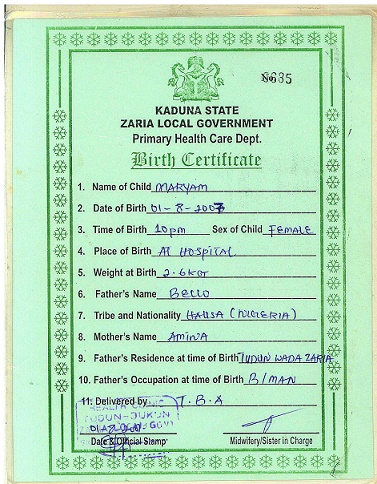 №635
KADUNA STATE
ZARIA LOCAL GOVERNMENT
Primary Health Care Dept.
Birth Certificate
1. Name of Child MARYAM
2. Date of Birth 01-8-2007
3. Time of Birth 10pm Sex of Child FEMALE
4. Place of Birth At HOSPITAL
5. Weight at Birth 2.6kg
6. Father's Name BELLO
7. Tribe and Nationality HAUSA (NIGERIA)
8. Mother's Name AMINA
9. Father's Residence at time of Birth TUDUN WADA ZARIA
10. Father's Occupation at time of Birth B/MAN
11. Delivered by T.B.A
HEALTH CLINIC
TUDUN-JUKUN
Date & Official Stamp Midwifery/Sister in Charge